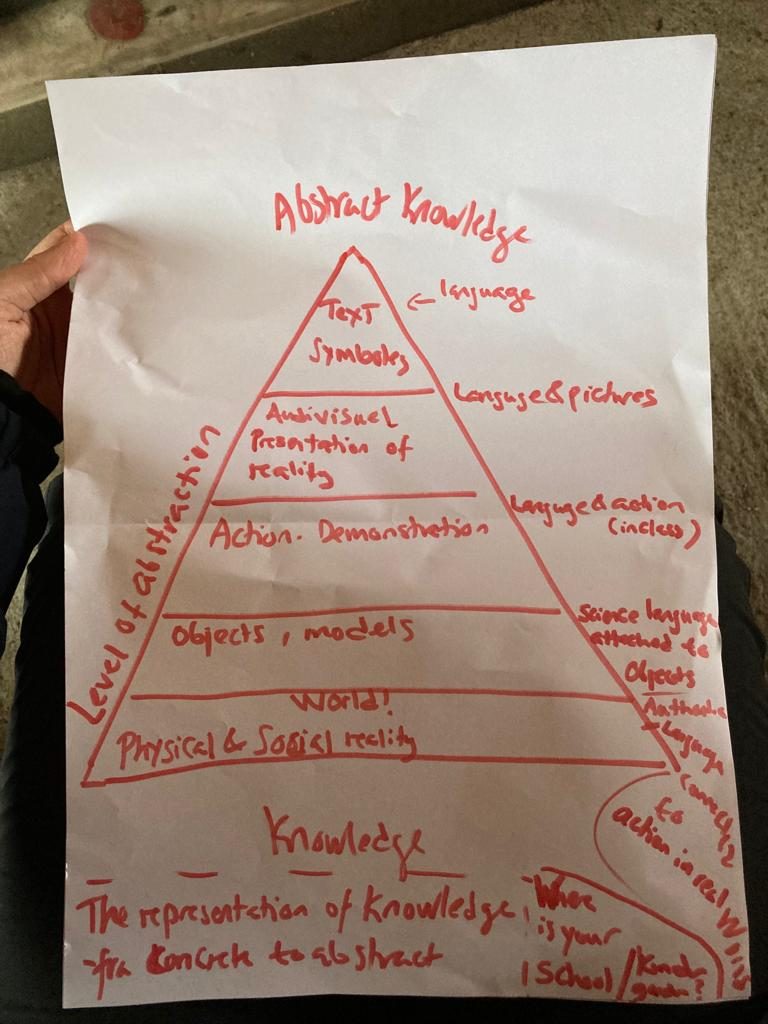 Abstract Knowledge
Text
Symboles
← language
Language & pictures
Audivisuel
Presentation of
reality
Language & action
(in class)
Action. Demonstration
Science language
attached to
Objects
Objects, models
Authentic
Language
World!
Physical & Social reality
Level of abstraction
Connected
to
action in real World
Knowledge
The representation of Knowledge
- fra Concrete to abstract
Where
is your
School /